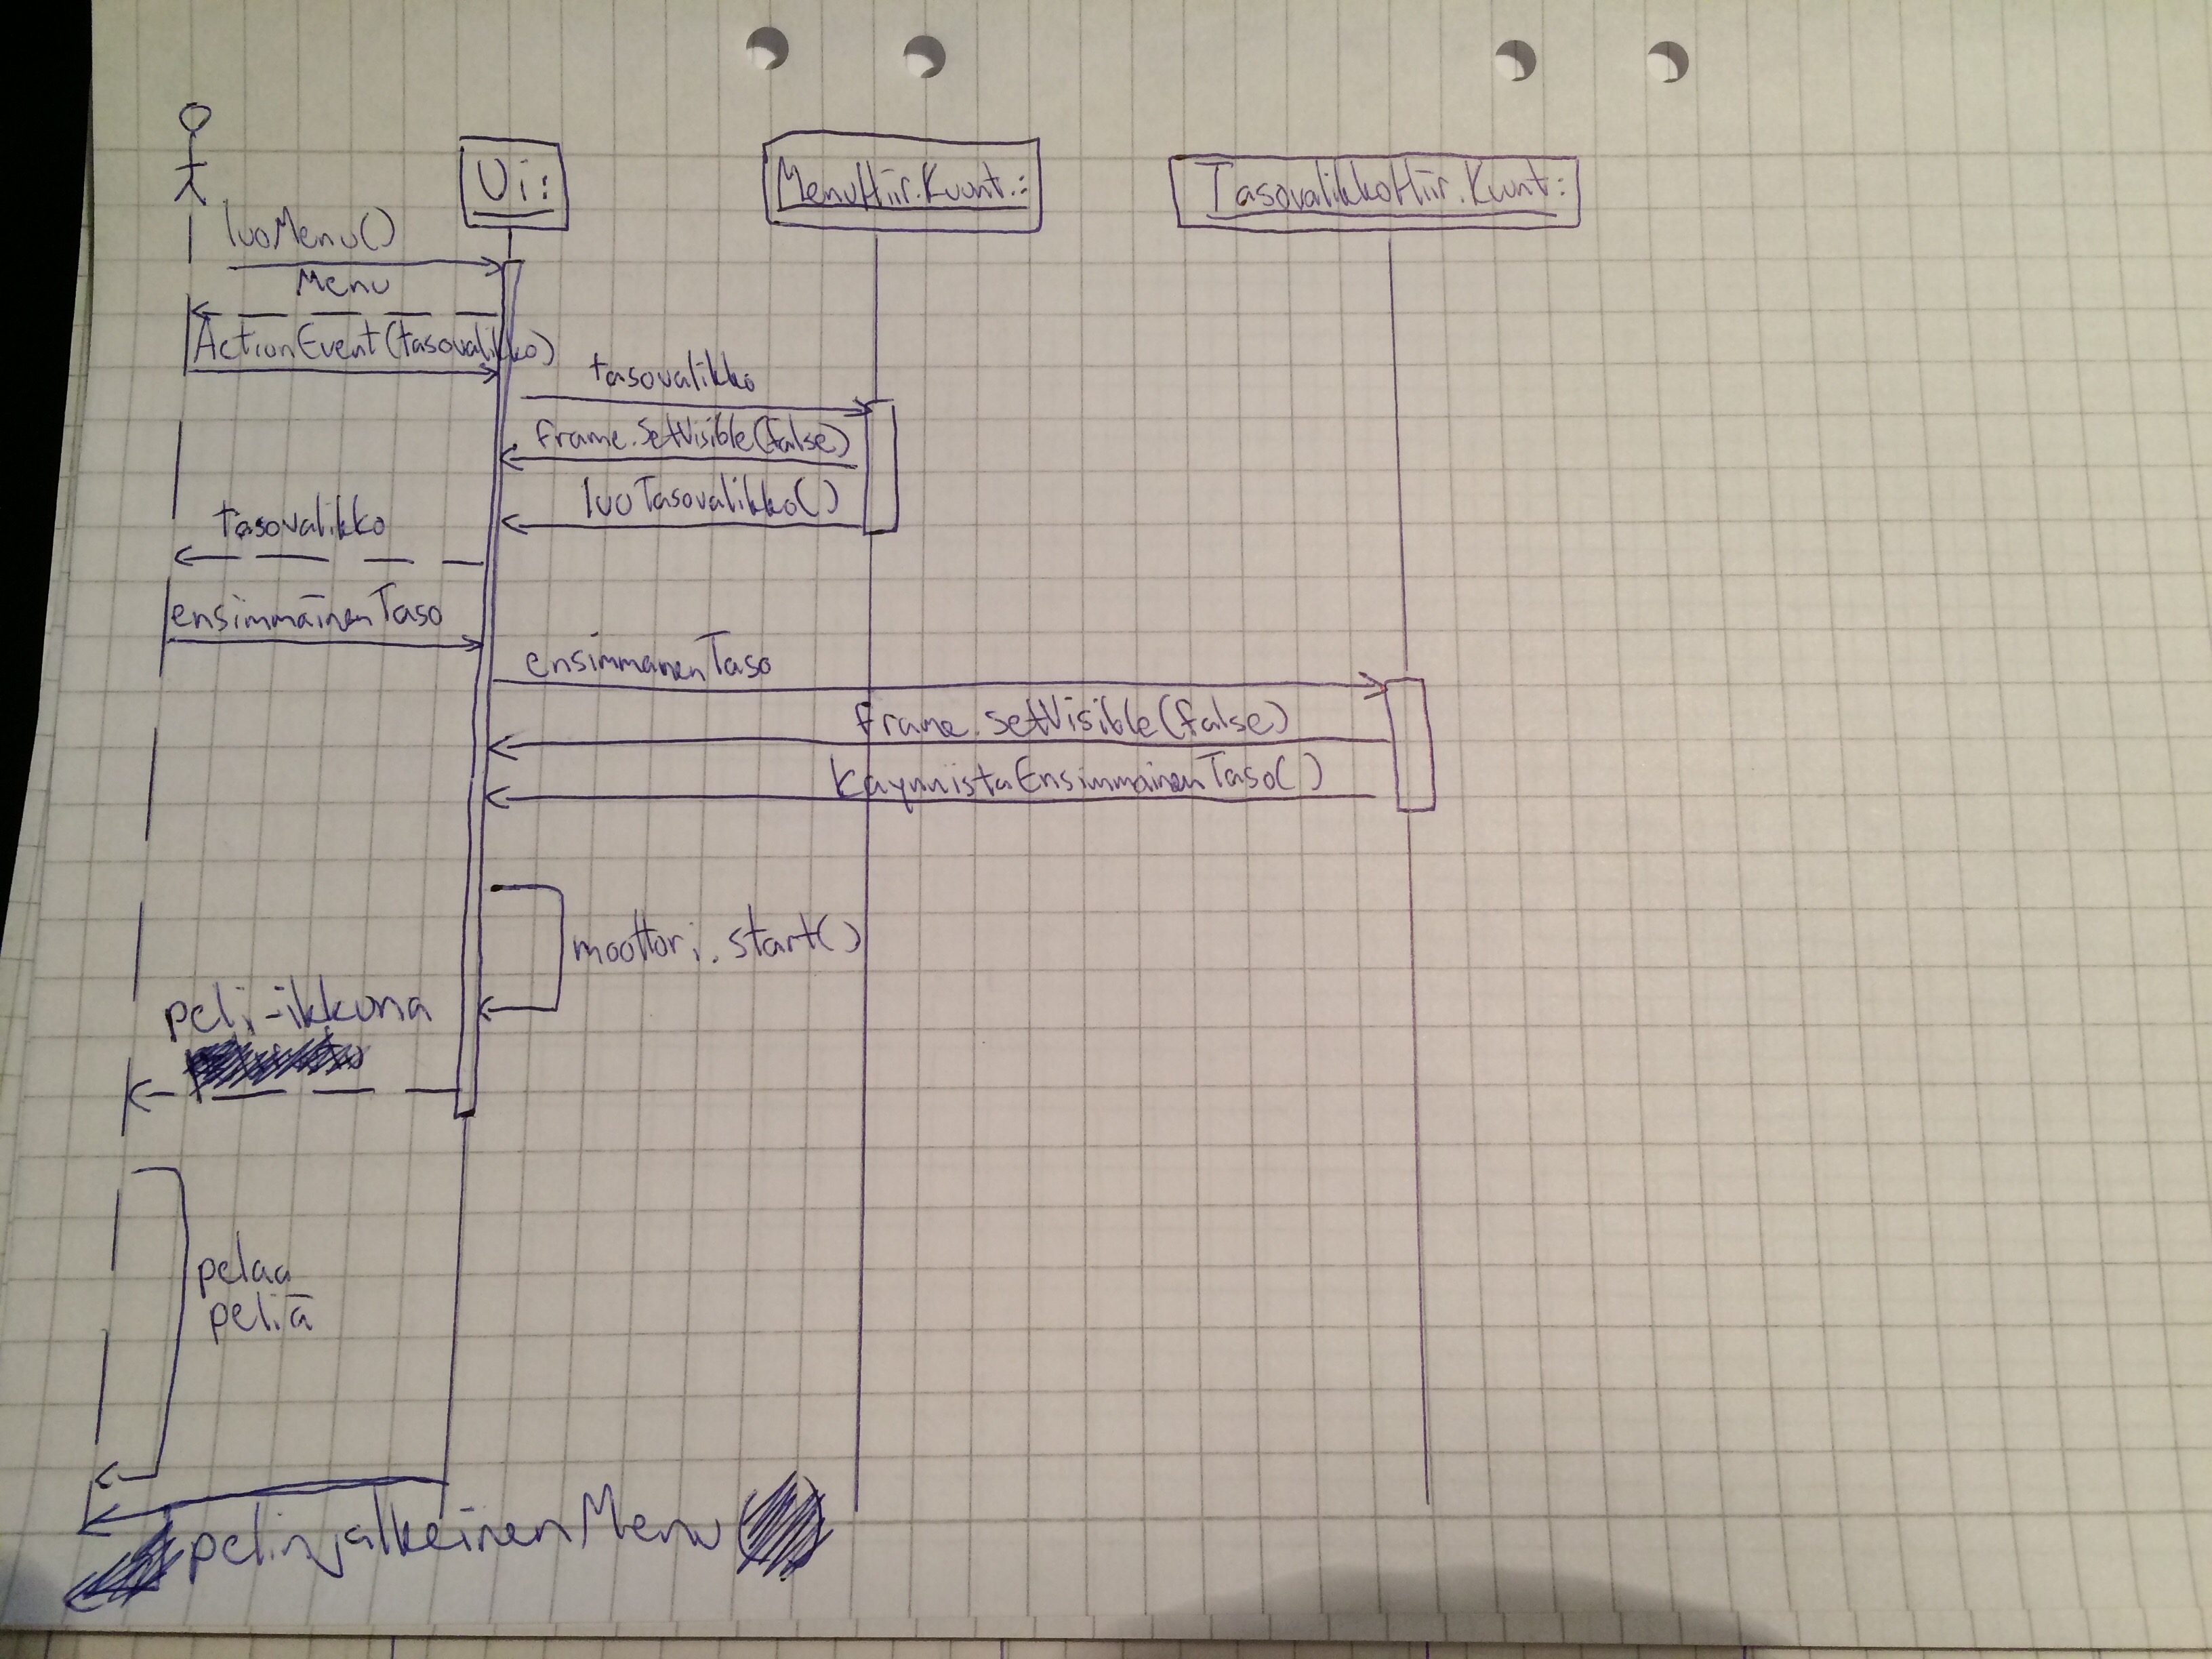 Ui:
MenuHiir.Kuunt.:
TasovalikkoHiir.Kuunt:
luoMenu()
Menu
ActionEvent(tasovalikko)
tasovalikko
frame.SetVisible(false)
luoTasovalikko()
tasovalikko
ensimmäinenTaso
ensimmainenTaso
frame.setVisible(false)
KaynnistaEnsimmainenTaso()
moottori.start()
peli-ikkuna
pelaa
peliä
pelinjalkeinenMenu